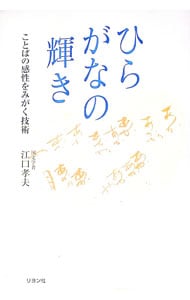 ひら
がなの
輝き
ことばの感性をみがく技術
江口孝夫
リヨン社